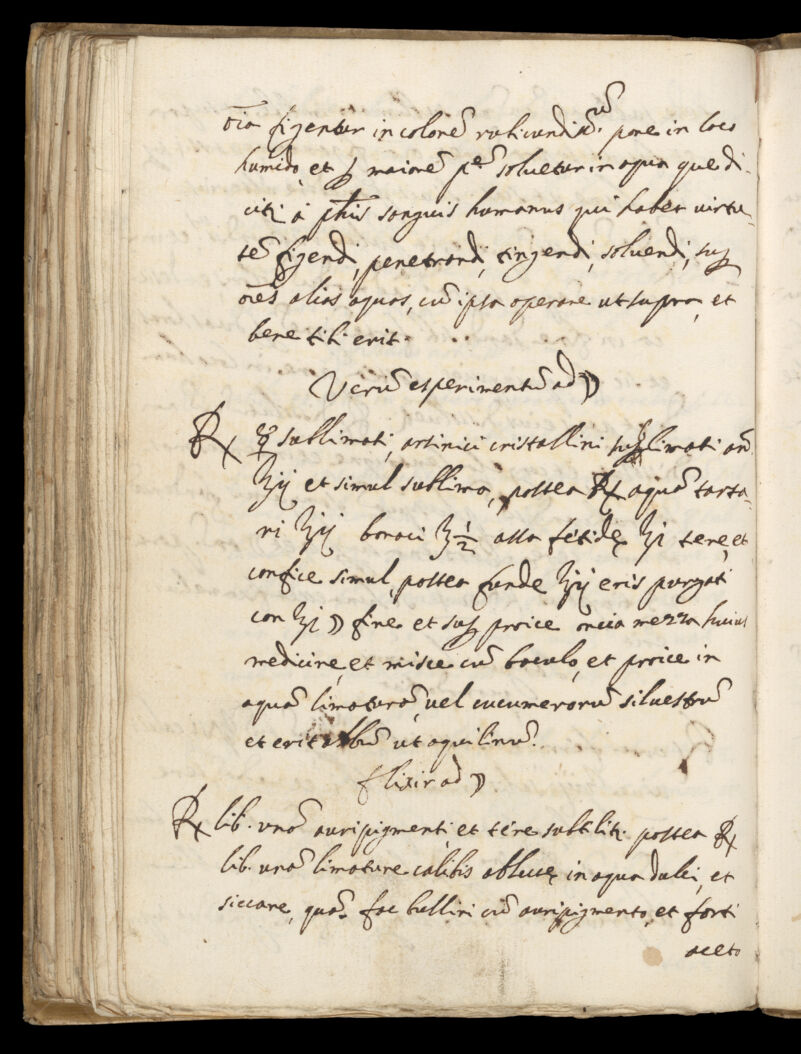 oīa figentur in colorē rubicundiss.ū pone in loco
humido, et p maiorē p.tē soluetur in aqua que di-
citr̃ à ph̄is sanguis humanus qui habet virtu-
tē figendi, penetrandi, tingendi, soluendi, sup
oēs alias aquas, cū ipsa operare ut supra, et
bene tibi erit.
Verū esperimentū ad ☽
℞ ☿ sublimati, arsinici cristallini sublimati añ
℥ij et simul sublima, postea ℞ aquā tarta-
ri ℥ij boraci ℥½ assa fetidę ℥j tere, et
confice simul, postea funde ℥ij eris purgati
con ℥j ☽ fine et sup proice oncia mezza huius
medicine, et misce cū baculo, et proice in
aquā limaturā, vel cucumerorū siluestrū
et erit albū ut aquilinū.
Elixir ad ☽
℞ lib. unā auripigmenti, et tere subtilitr̃. postea ℞
lib. unā limature calibis ablue, in aqua dulci, et
siccare, quā fac bulliri cū auripigmento, et forti
aceto